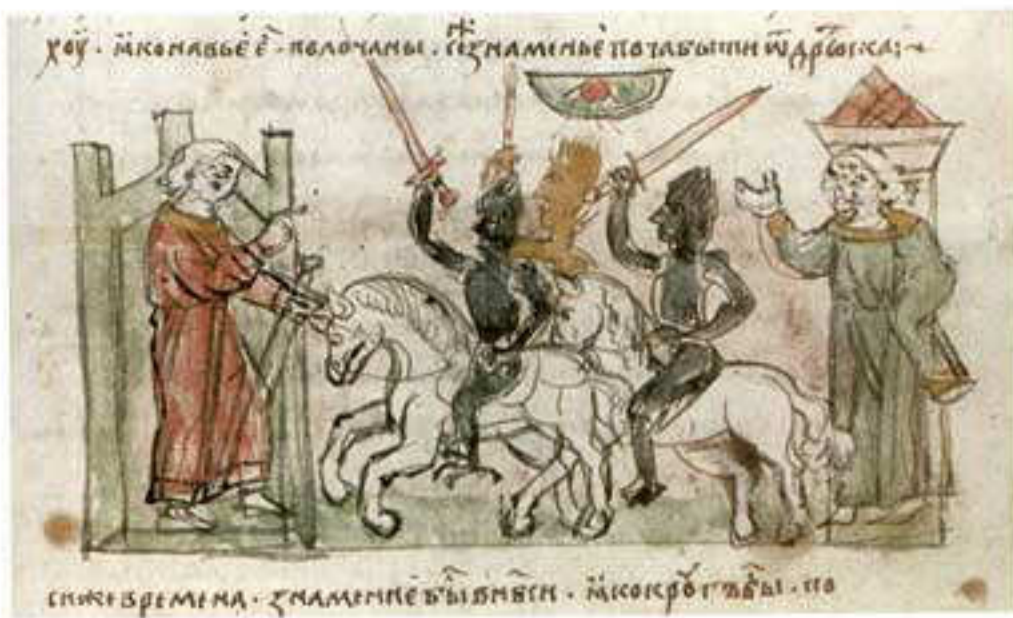 хоу · ꙗко навьє є҃ · полочаны · се знаменьє поча быти ѿ дрюс̑ка :~
си же времена · знамениє бы̑ в нб҃си · ꙗко кроугъ бы̑ · по